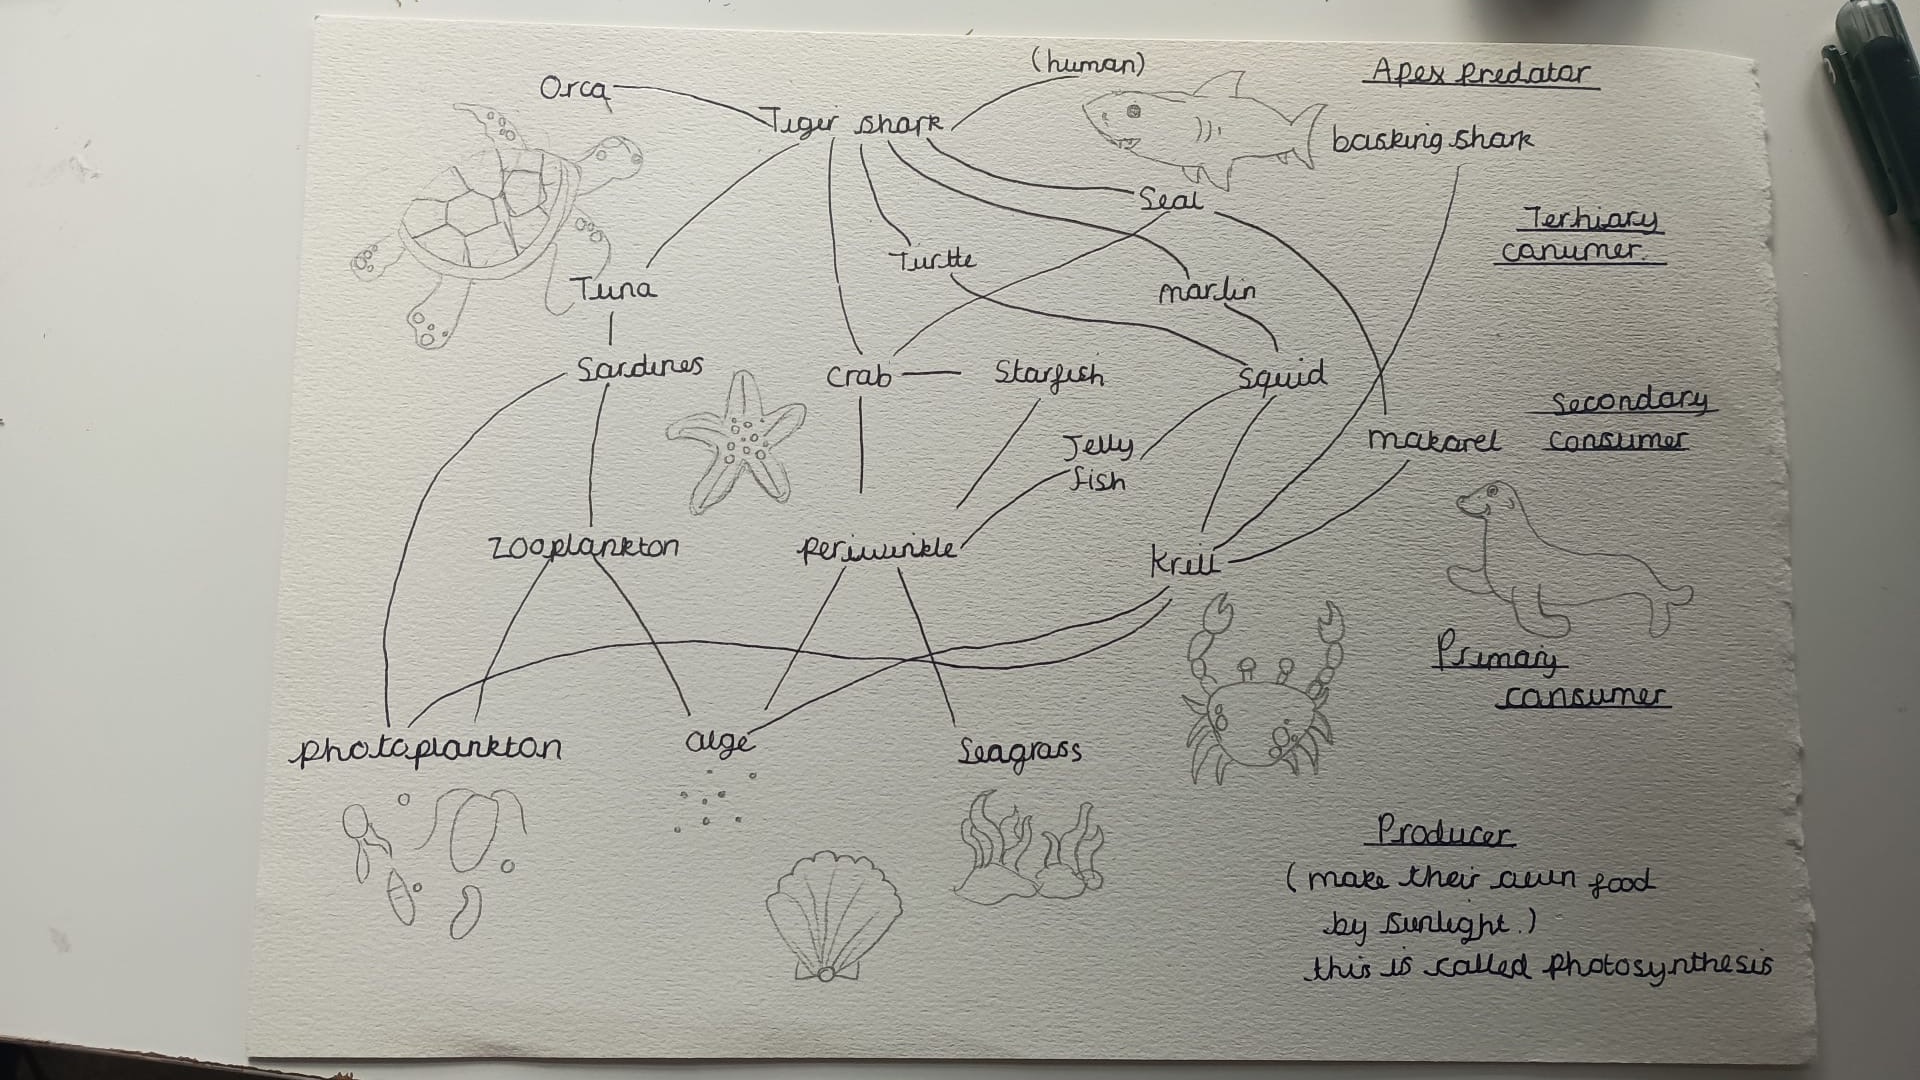 (human)
Apex predator
Orca
Tiger shark
basking shark
Seal
Terhiary
canumer.
Turtte
Tuna
marlin
Sardines
crab
Starfish
Squid
Secondary
consumer
makarel
Jelly
fish
zooplankton
periwinkle
krill
Primary
consumer
photoplankton
alge
Seagrass
Producer
(make their own food
by sunlight.)
this is called photosynthesis